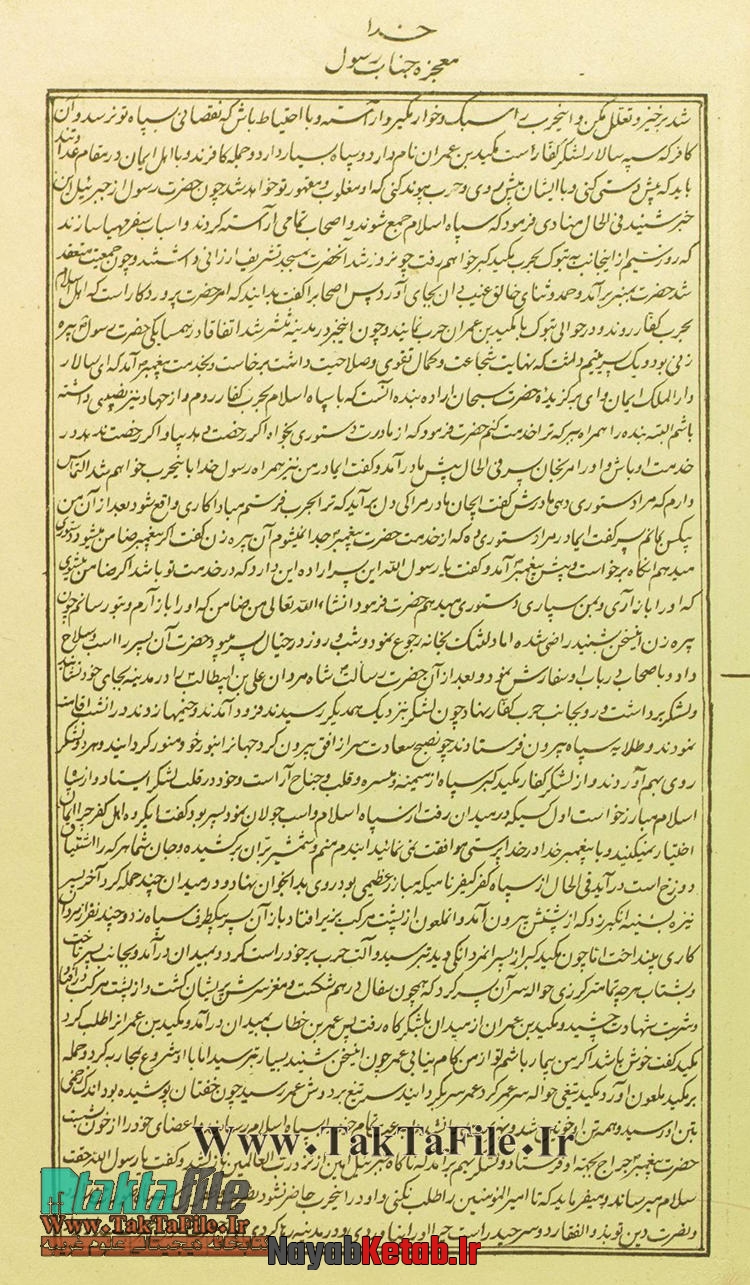 خدا
معجزه جناب رسول
شد برخیز و تعلل مکن و اینحرب را سبک و خوار مگیر و آراسته و با احتیاط باش که نقصانی بسپاه تو نرسد و آن
کافر که سپه سالار لشکر کفار است مکید بن عمران نام دارد و سپاه بسیار دارد و جمله کافرند و با اهل ایمان در مقام
باید که پیش دستی کنی و با ایشان پیش روی و حرب پیوند کنی که او مغلوب و مقهور تو خواهد شد چون حضرت رسول از جبرئیل این
خبر شنید فی الحال منادی فرمود که سپاه اسلام جمع شوند و اصحاب تمامی آراسته کردند و اسباب سفر مهیا سازند
که روز سیم از اینجانب به تبوک بحرب مکید کبر خواهم رفت چو نروز شد آنحضرت بمسجد تشریف ارزانی داشتند و چون جمعیت منعقد
شد حضرت بمنبر برآمد و حمد و ثنای خالق بجای آورد پس اصحابرا گفت بدانید که امر حضرت پروردکار است که اهل اسلام
بحرب کفار روند و در حوالی تبوک با مکید بن عمران حرب نمایند و چون اینخبر در مدینه منتشر شد اتفاقا در همسایکی حضرت رسول پیره
زنی بود و یک پسر یتیم داشت که نهایت شجاعت و کمال تقوی و صلاحیت داشت برخاست و بخدمت پیغمبر آمد که ای سالار
دار الملک ایمان و ای برگزیدهٔ حضرت سبحان اراده بنده آنست که با سپاه اسلام بحرب کفار روم و از جهاد نیز نصیبی داشته
باشم البته بنده را همراه ببر که ترا خدمت کنم حضرت فرمود که از مادرت دستوری بخواه اکر رخصت دهد بیا و اکر رخصت ندهد در
خدمت او باش و او را مرنجان پسر فی الحال پیش مادر آمد و گفت ایمادر من نیز همراه رسول خدا باینحرب خواهم شد التماس
دارم که مرا دستوری دهی مادرش گفت ایجان مادر مرا کی دل برآید که ترا بحرب فرستم مبادا کاری واقع شود بعد از آن من
بیکس بمانم پسر گفت ایمادر مرا دستوری ده که از خدمت حضرت پیغمبر جدا نمیشوم آن پیره زن گفت اکر پیغمبر ضامن میشود دستوری
میدهم آنکاه برخواست و پیش پیغمبر آمد و گفت یا رسول الله این پسر اراده این دارد که در خدمت تو باشد اکر ضامن میشوی
که او را باز آری و بمن سپاری دستوری میدهم حضرت فرمود انشاء الله تعالی من ضامن که او را باز آرم و بتو رسانم چون
پیره زن اینسخن بشنید راضی شده اما دلتنک بخانه رجوع نمود و شب و روز در خیال پسر میبود حضرت آن پسر را اسب و سلاح
داد و باصحاب در باب او سفارش نمود و بعد از آن حضرت رسالت شاه مردان علی بن ابیطالب را در مدینه بجای خود نشانید
و لشکر برداشت و رو بجانب حرب کفار نهاد چون لشکر نزدیک همدیکر رسیدند فرود آمدند و خیمها زدند در آنشب اقامت
نمودند و طلایه سپاه بیرون فرستادند چو نصبح سعادت سر از افق بیرون کرد جهانرا بنور خود منور کردانید و هر دو لشکر
روی بهم آوردند و از لشکر کفار مکید کبر سپاه از میمنه و میسره و قلب و جناح آراست و خود در قلب لشکر ایستاد و از سپاه
اسلام مبارز خواست اول کسیکه در میدان رفت از سپاه اسلام و اسب جولان نمود پسر بود گفت ایکروه اهل کفر چرا ایمان
اختیار نمیکنید و با پیغمبر خدا در خدا پرستی موافقت نمی نمائید اینک منم و شمشیر بران برکشیده و جان شما هر که را اشتیاق
دوزخ است درآید فی الحال از سپاه کفر کیفر نامیکه مبارز عظیمی بود روی بدانجوان نهاد و در میدان چند حمله کرد آخر پسر
نیزه بسینه انکبر زد که از پشتش بیرون آمد و انملعون از پشت مرکب بزیر افتاد باز آن پسر یکطرف سپاه زد و چند نفر از مردان
کاری بینداخت اما چون مکید کبر از پسر آنمردانکی دید بترسید و آلت حرب بر خود راست کرد و بمیدان درآمد و بجانب پسر تاخت
و بشتاب هر چه تمامتر کرزی حواله سر آن پسر کرد که همچون سفال درهم شکست و مغز سرش پریشان کشت و از پشت مرکب در افتاد
و شربت شهادت چشید و مکید بن عمران از میدان بلشکرکاه رفت پس عمر بن خطاب بمیدان درآمد و مکید بن عمرانرا طلب کرد
مکید گفت خوش باشد اکر من بیمار باشم تو از من کام نیابی عمر چون اینسخن بشنید بسیار بترسید اما با او شروع بمحاربه کرد و حمله
بر مکید ملعون آورد مکید تیغی حواله سر عمر کرد عمر سر بکردانید سر تیغ بر دوش عمر رسید چون خفتان پوشیده بود اندک زخمی
بتن او رسید و همه تن او خونین شد سپاه اسلام رسانید و اعضای خود را از خون شست
حضرت پیغمبر جراح بجهته او فرستاد و لشکر بهم برآمد که ناکاه جبرئیل امین از نزد رب العالمین نازل شد و گفت یا رسول الله حقت
سلام میرساند و میفرماید که تا امیر المؤمنین را طلب نکنی و او در اینحرب حاضر نشود
و نصرت دین تو بذو الفقار دو سر حیدر است چرا او را در مدینه رها کردی
Www.TakTaFile.Ir
taktafile
Www.TakTaFile.Ir
کتابخانه دیجیتالی علوم غریبه
NayabKetab.Ir